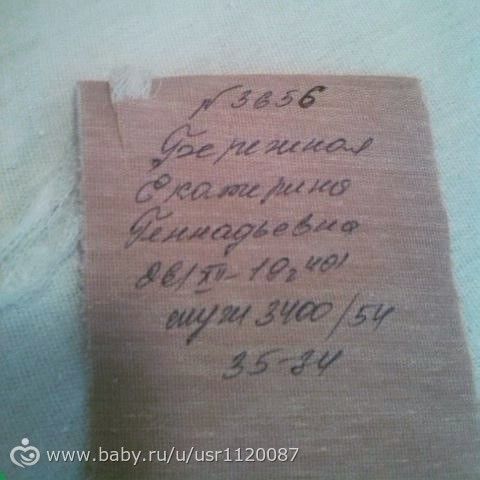 № 3656
Бережная
Екатерина
Геннадьевна
26/XII-10г 401
муж 3400/54
35-34
www.baby.ru/u/usr1120087